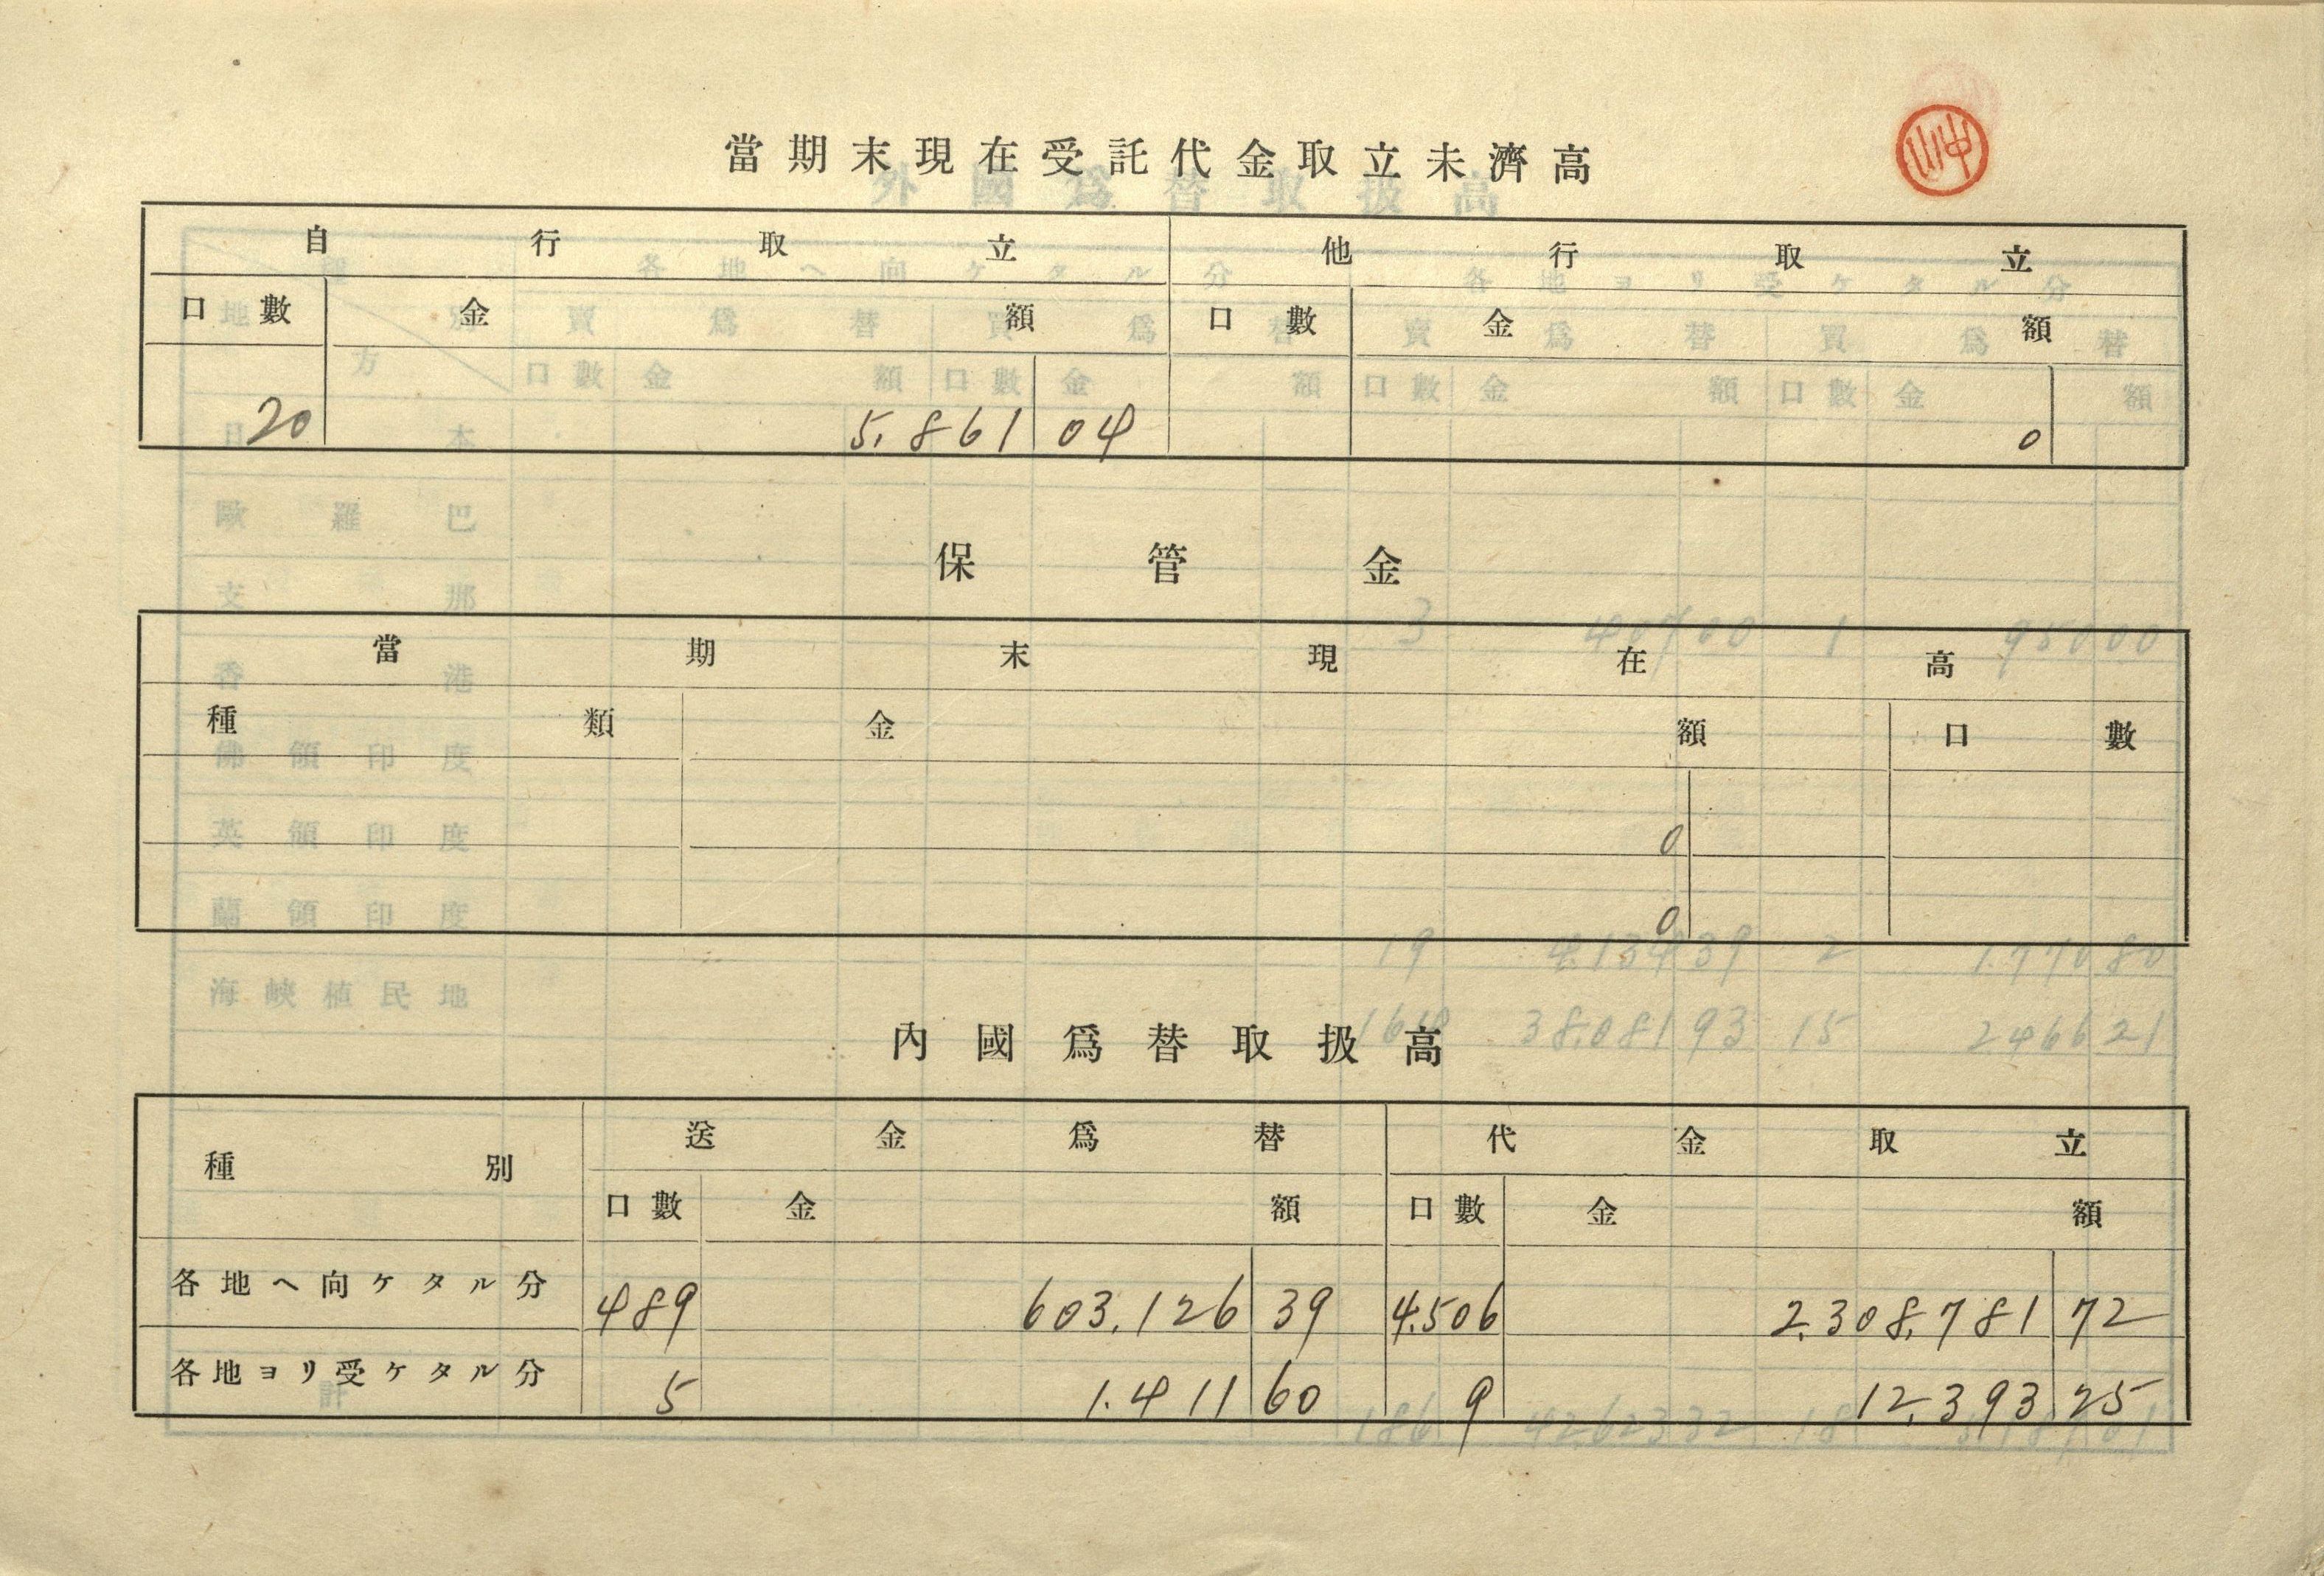 當期末現在受託代金取立未濟高
自行取立 他行取立
口數 金額 口數 金額
20 5.861 04 0
保管金
當期末現在高
種類 金額 口數
0
0
內國爲替取扱高
種別 送金爲替 代金取立
口數 金額 口數 金額
各地ヘ向ケタル分 489 603.126 39 4.506 2.308.781 72
各地ヨリ受ケタル分 5 1.411 60 9 12.393 25